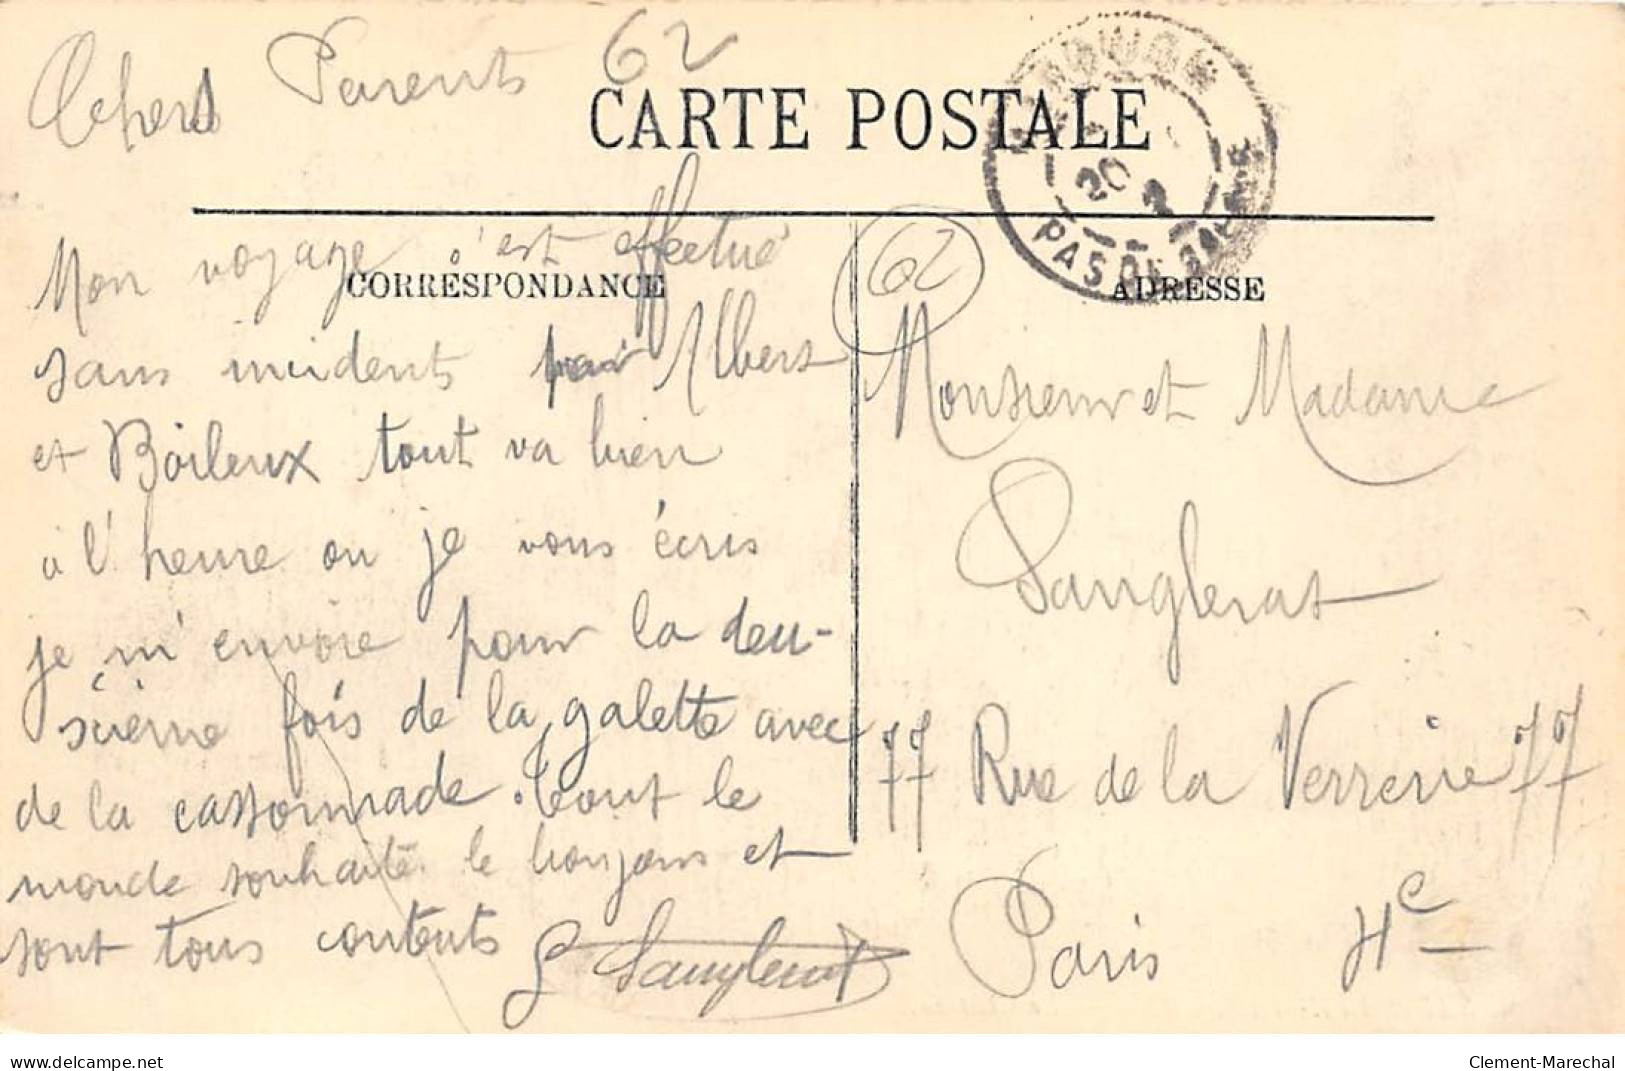 Chers Parents 62
CARTE POSTALE
20
PAS DE CALAIS
CORRESPONDANCE
ADRESSE
62
Mon voyage c'est effectué
sans incidents pour Albert
et Boileux tout va bien
à l'heure ou je vous écris
je m'envoie pour la deu-
sième fois de la galette avec
de la cassonnade. tout le
monde souhaite le bonjour et
sont tous contents
Sanglerat
Monsieur et Madame
Sanglerat
77 Rue de la Verrerie 77
Paris 4e
delcampe.net
Clement-Marechal